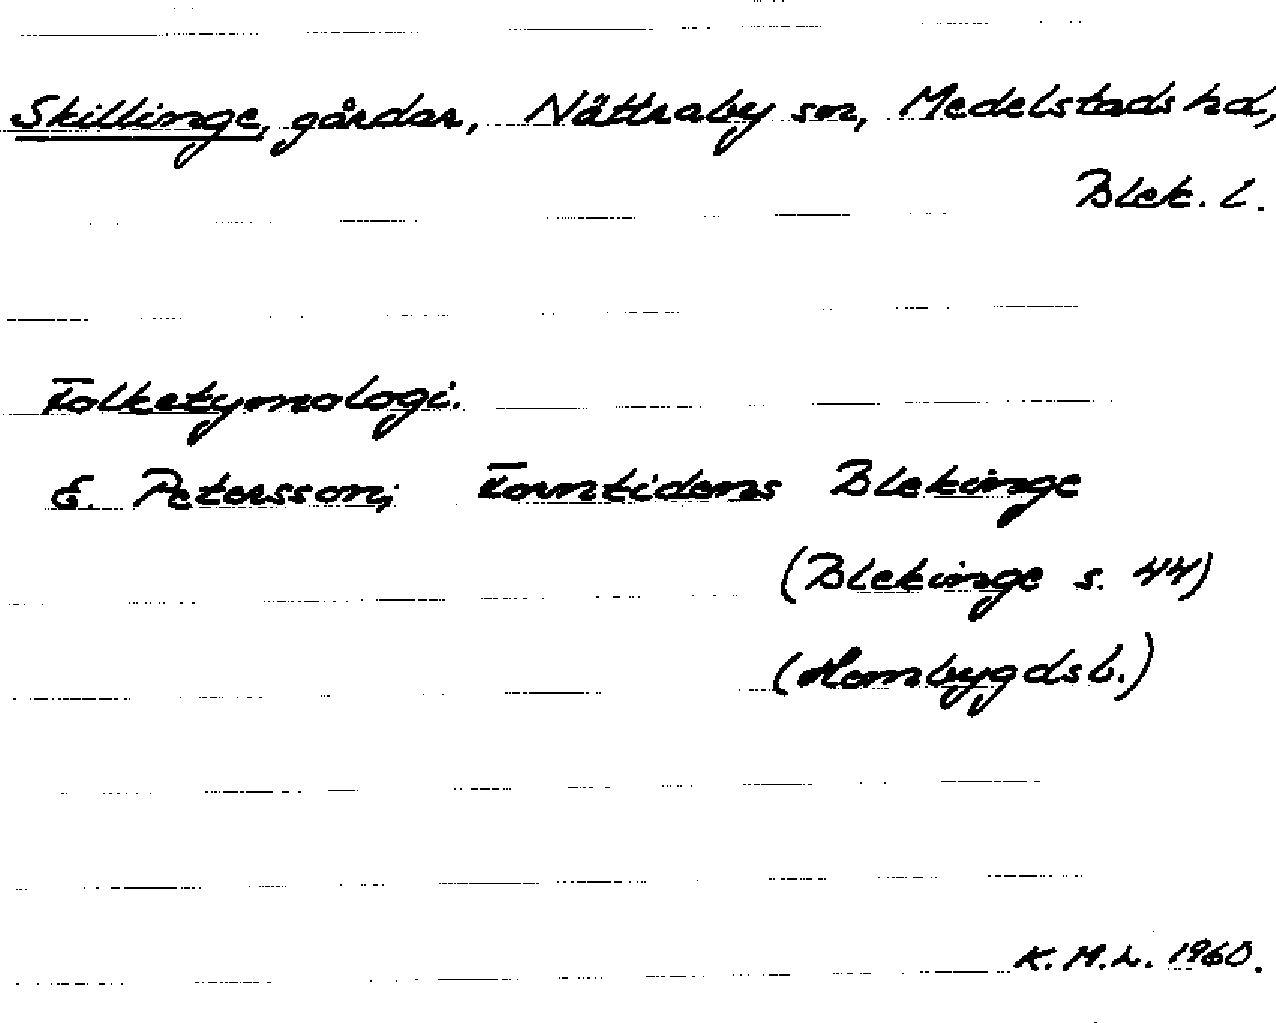 Skillinge, gårdar, Nättraby sn, Medelstads hd,
Blek. l.
Folketymologi.
E. Petersson; Forntidens Blekinge
(Blekinge s. 44)
(Hembygdsb.)
K.M.L. 1960.